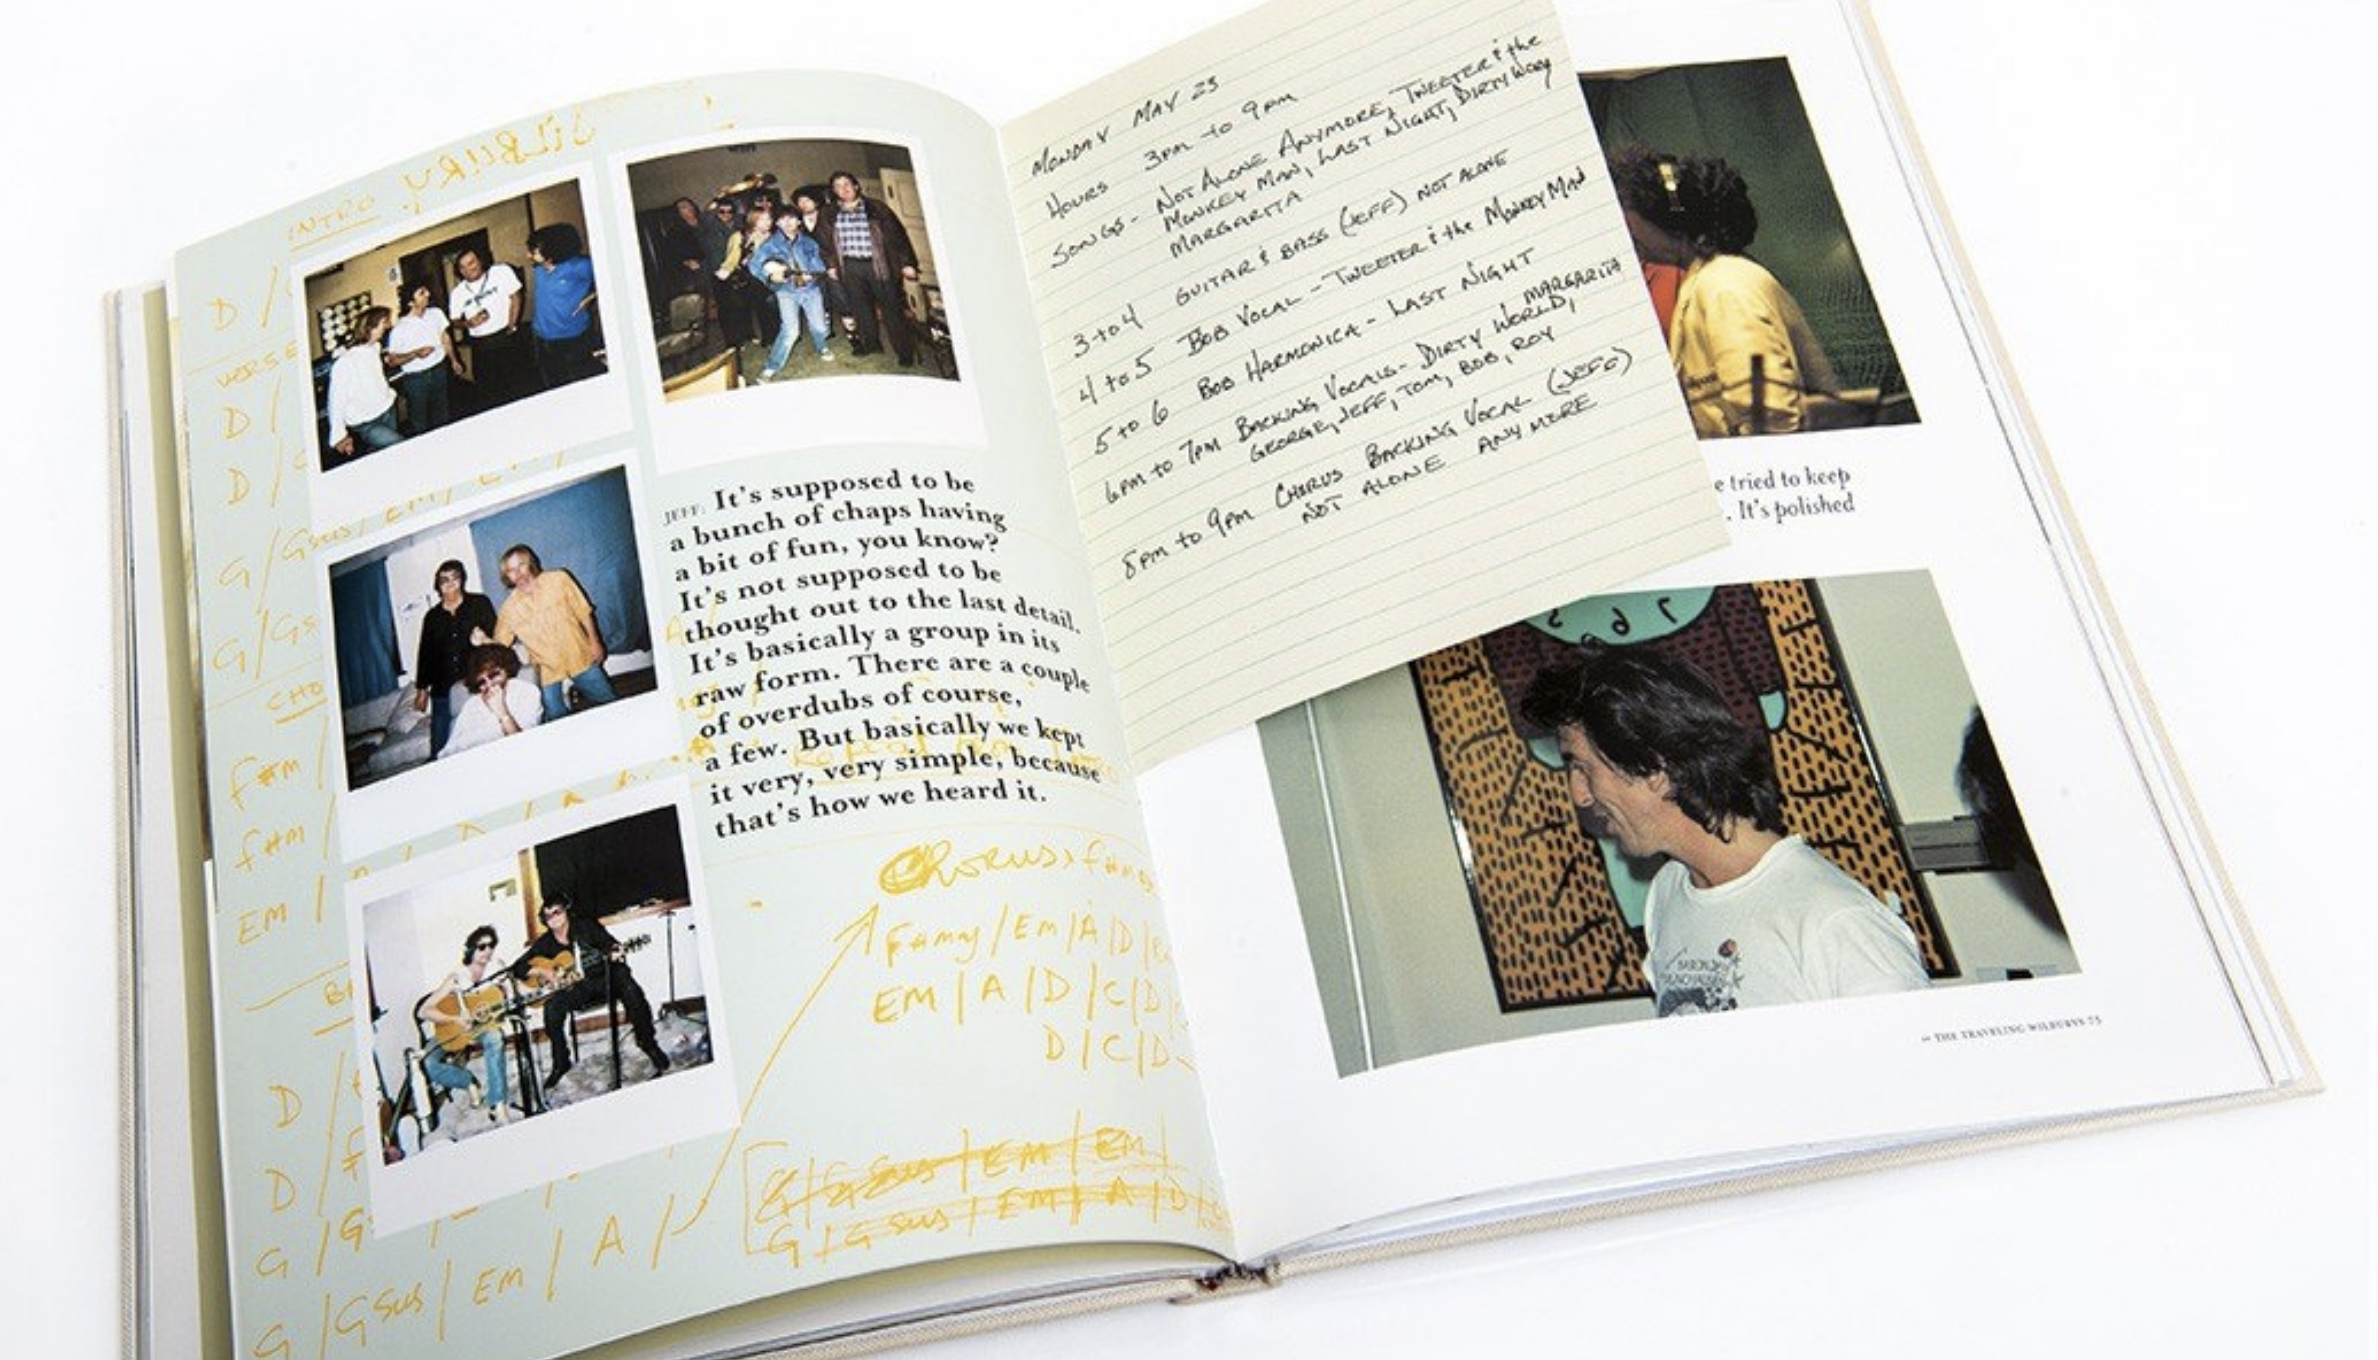 INTRO
D /
VERSE
D /
D /
G/Gsus/ Em/
G/Gs
CHO
F#m /
F#m /
Em /
D /
D / F
G / G
G /Gsus/ Em / A /
JEFF: It's supposed to be
a bunch of chaps having
a bit of fun, you know?
It's not supposed to be
thought out to the last detail.
It's basically a group in its
raw form. There are a couple
of overdubs of course,
a few. But basically we kept
it very, very simple, because
that's how we heard it.
Chorus
/Em/A/D/
EM / A / D / C / D /
D / C / D
G/G Sus / EM / EM /
G / G sus / EM / A / D /
MONDAY MAY 23
HOURS 3pm to 9pm
SONGS - NOT ALONE ANYMORE, TWEETER & the
MONKEY MAN, LAST NIGHT, DIRTY WORLD
MARGARITA
3 to 4 GUITAR & BASS (JEFF) NOT ALONE
4 to 5 BOB VOCAL - TWEETER & the MONKEY MAN
5 to 6 BOB HARMONICA - LAST NIGHT
MARGARITA
6pm to 7pm BACKING VOCALS - DIRTY WORLD,
GEORGE, JEFF, TOM, BOB, ROY
8pm to 9pm CHORUS BACKING VOCAL (JEFF)
NOT ALONE ANYMORE
e tried to keep
. It's polished
THE TRAVELING WILBURYS 75